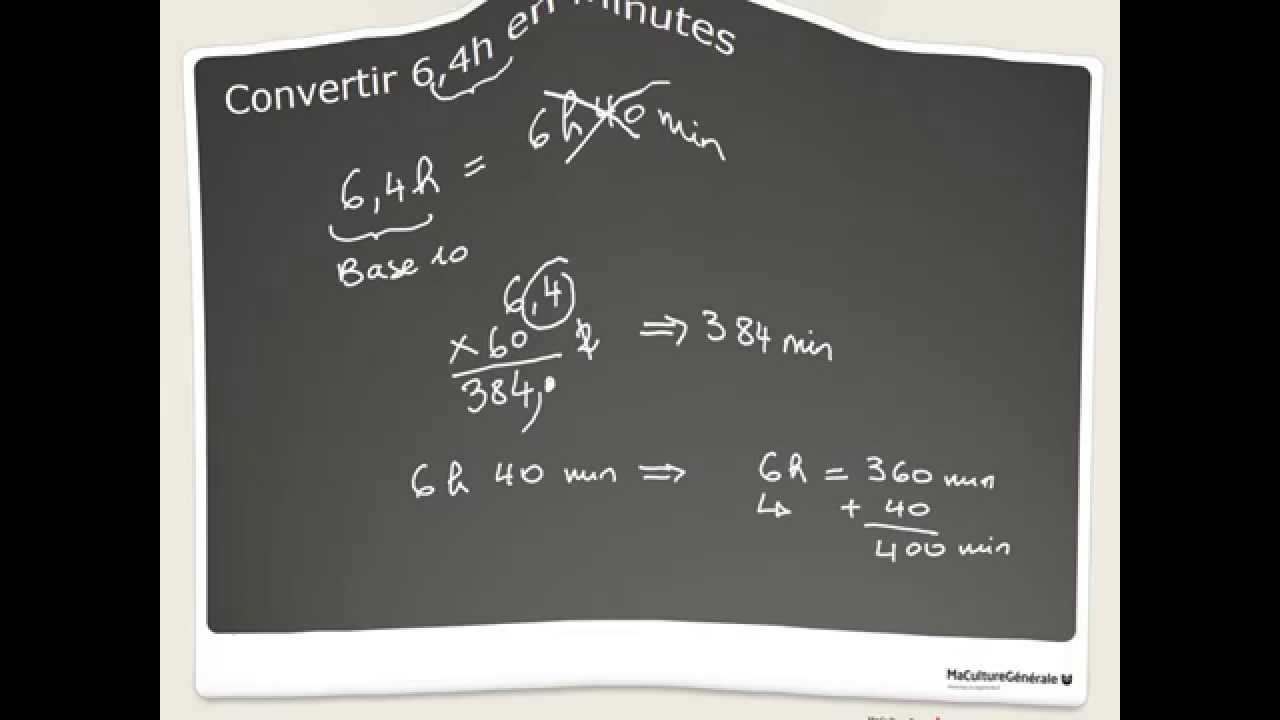 Convertir 6,4h en minutes
6,4h = 6h 40 min
Base 10
6,4
× 60
384, ⇒ 384 min
6h 40 min ⇒ 6h = 360 min
↳ + 40
400 min
MaCultureGénérale